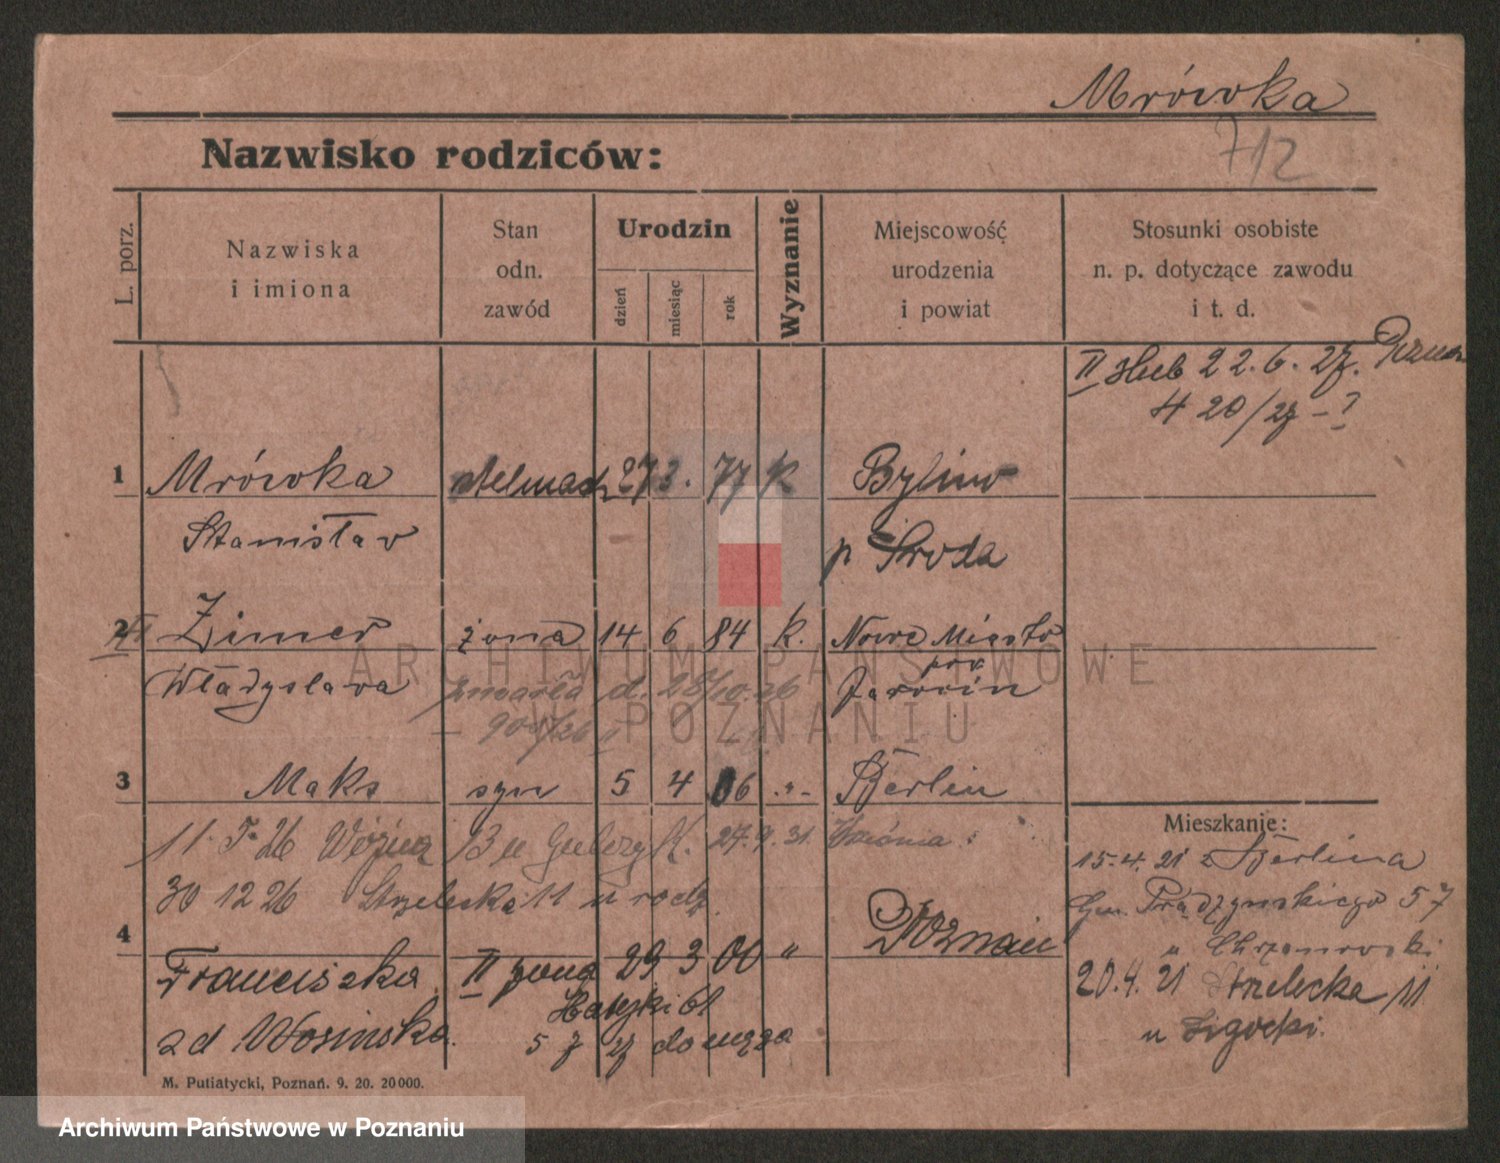 Mrówka
Nazwisko rodziców:
712
L. porz.
Nazwiska
i imiona
Stan
odn.
zawód
Urodzin
dzień
miesiąc
rok
Wyznanie
Miejscowość
urodzenia
i powiat
Stosunki osobiste
n. p. dotyczące zawodu
i t. d.
II ślub 22.6.27.
420/27 - ?
1 Mrówka stelmach 27 3. 77 k Bylin
Stanisław p Środa
2 II Zimer żona 14 6 84 k. Nowe Miasto
Władysława zmarła d. 28/10.26 pow. Jarocin
3 Maks syn 5 4 06 -"- Berlin
27.9.31
30 12 26 Strzelecka 11 u rodz.
4 Franciszka II żona 29 3 00 " Poznań
zd Wosińska
5 7 27 do męża
Mieszkanie:
15.4.21 z Berlina
Gen. Prądzyńskiego 57
u Chrzanowski
20.4.21 Strzelecka 11
u Ligocki.
M. Putiatycki, Poznań. 9. 20. 20000.
ARCHIWUM PAŃSTWOWE
W POZNANIU
Archiwum Państwowe w Poznaniu